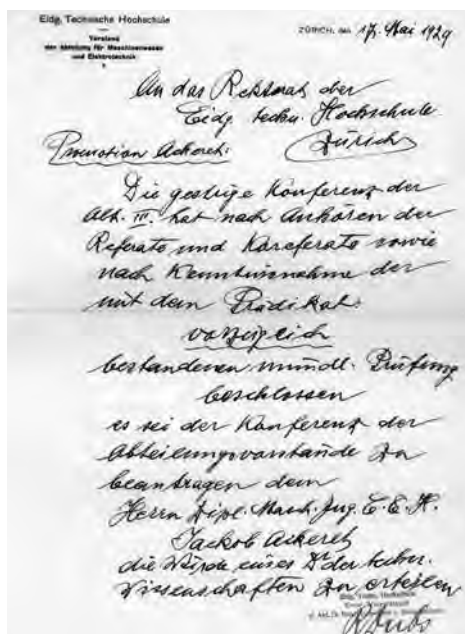 Eidg. Technische Hochschule
Vorstand
der Abteilung für Maschinenwesen
und Elektrotechnik
ZÜRICH, den 17. Mai 1929
An das Rektorat der
Eidg. techn. Hochschule
Zürich
Promotion Ackeret:
Die gestrige Konferenz der
Abt. III. hat nach Anhören der
Referate und Koreferate sowie
nach Kenntnisnahme der
mit dem Prädikat:
vorzüglich
bestandenen mündl. Prüfung
beschlossen
es sei der Konferenz der
Abteilungsvorstände zu
beantragen dem
Herrn Dipl. Masch. Ing. E.T.H.
Jackob Ackeret
die Würde eines Dr der techn.
Wissenschaften zu erteilen
Eidg. Techn. Hochschule